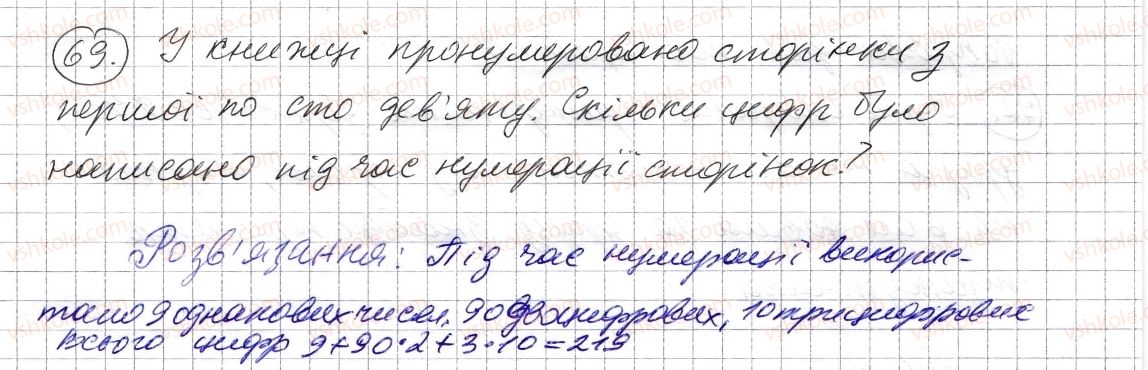 69. У книжці пронумеровано сторінки з
першої по сто дев'яту. Скільки цифр було
написано під час нумерації сторінок?
Розв'язання: Під час нумерації викорис-
тано 9 однакових чисел, 90 двоцифрових, 10 трицифрових
Всього цифр 9+90·2+3·10=219